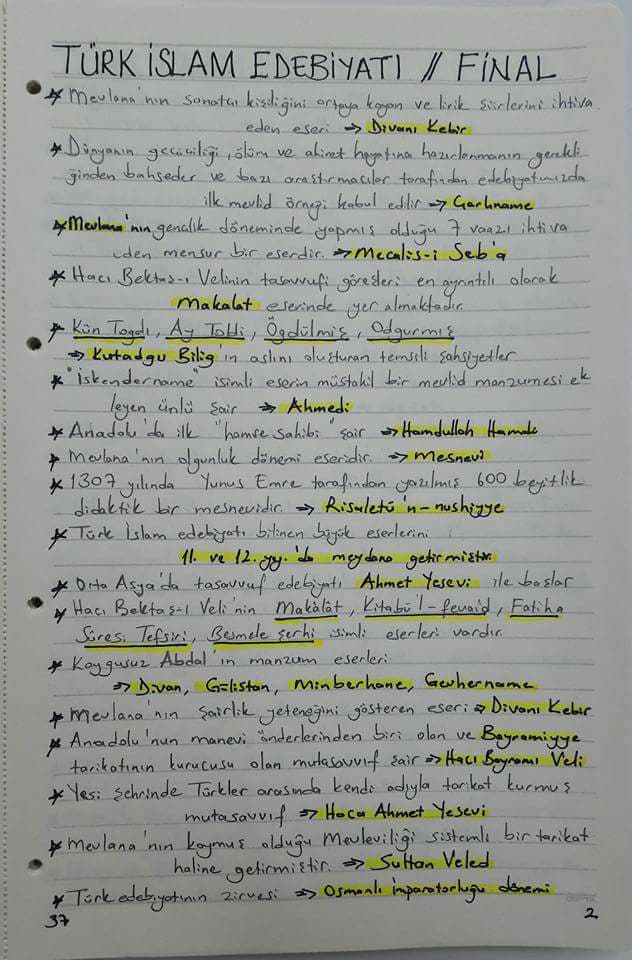 TÜRK İSLAM EDEBİYATI // FİNAL
* Mevlana'nın sanatçı kişiliğini ortaya koyan ve lirik şiirlerini ihtiva
eden eseri => Divanı Kebir
* Dünyanın geçiciliği, ölüm ve ahiret hayatına hazırlanmanın gerekli
ğinden bahseder ve bazı araştırmacılar tarafından edebiyatımızda
ilk mevlid örneği kabul edilir => Garibname
* Mevlana'nın gençlik döneminde yapmış olduğu 7 vaazı ihtiva
eden mensur bir eserdir. => Mecalis-i Seb'a
* Hacı Bektaş-ı Velinin tasavvufi görüşleri en ayrıntılı olarak
Makalat eserinde yer almaktadır.
* Kün Togdı, Ay Toldı, Ögdülmiş, Odgurmış
=> Kutadgu Bilig'in aslını oluşturan temsili şahsiyetler
* "İskendername" isimli eserin müstakil bir mevlid manzumesi ek
leyen ünlü şair => Ahmedi
* Anadolu'da ilk "hamse sahibi" şair => Hamdullah Hamdi
* Mevlana'nın olgunluk dönemi eseridir. => Mesnevi
* 1307 yılında Yunus Emre tarafından yazılmış 600 beyitlik
didaktik bir mesnevidir. => Risaletü'n-nushiyye
* Türk İslam edebiyatı bilinen büyük eserlerini
11. ve 12. yy.'da meydana getirmiştir.
* Orta Asya'da tasavvuf edebiyatı Ahmet Yesevi ile başlar
* Hacı Bektaş-ı Veli'nin Makâlât, Kitabü'l-fevaid, Fatiha
Sûresi Tefsiri, Besmele şerhi isimli eserleri vardır.
* Kaygusuz Abdal'ın manzum eserleri
=> Divan, Gülistan, Minberhane, Gevhername
* Mevlana'nın şairlik yeteneğini gösteren eseri => Divanı Kebir
* Anadolu'nun manevi önderlerinden biri olan ve Bayramiyye
tarikatının kurucusu olan mutasavvıf şair => Hacı Bayramı Veli
* Yesi şehrinde Türkler arasında kendi adıyla tarikat kurmuş
mutasavvıf => Hoca Ahmet Yesevi
* Mevlana'nın koymuş olduğu Mevleviliği sistemli bir tarikat
haline getirmiştir. => Sultan Veled
* Türk edebiyatının zirvesi => Osmanlı imparatorluğu dönemi
37
2